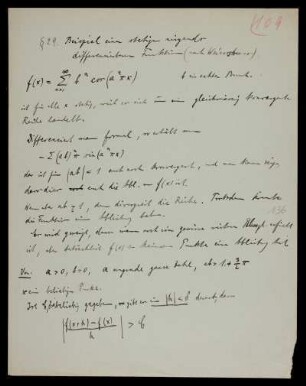 109
§ 29. Beispiel einer stetigen nirgends
differenzierbaren Funktion (nach Weierstrass)
f(x) = Σ bⁿ cos(aⁿπx) b ein echter Bruch.
ist für alle x stetig, weil es sich um eine gleichmässig konvergente
Reihe handelt.
Differenziert man formal, so erhält man
- Σ(ab)ⁿ sin(aⁿπx)
das ist für |ab| < 1 auch noch konvergent, und
dass dies die Abl. von f(x) ist.
ab ≥ 1, dann divergiert die Reihe. Trotzdem könnte
die Funktion eine Ableitung haben.
Es wird gezeigt, dass wenn noch ein gewisse weitere erfüllt
ist, f(x) in keinem Punkte eine Ableitung hat
Vor: a > 0, b > 0, a ungerade ganze Zahl, ab > 1 + 3/2 π
x ein beliebiger Punkt.
Ist beliebig gegeben, so gibt es ein |h| < δ derart, dass
|f(x+h) - f(x) / h| >